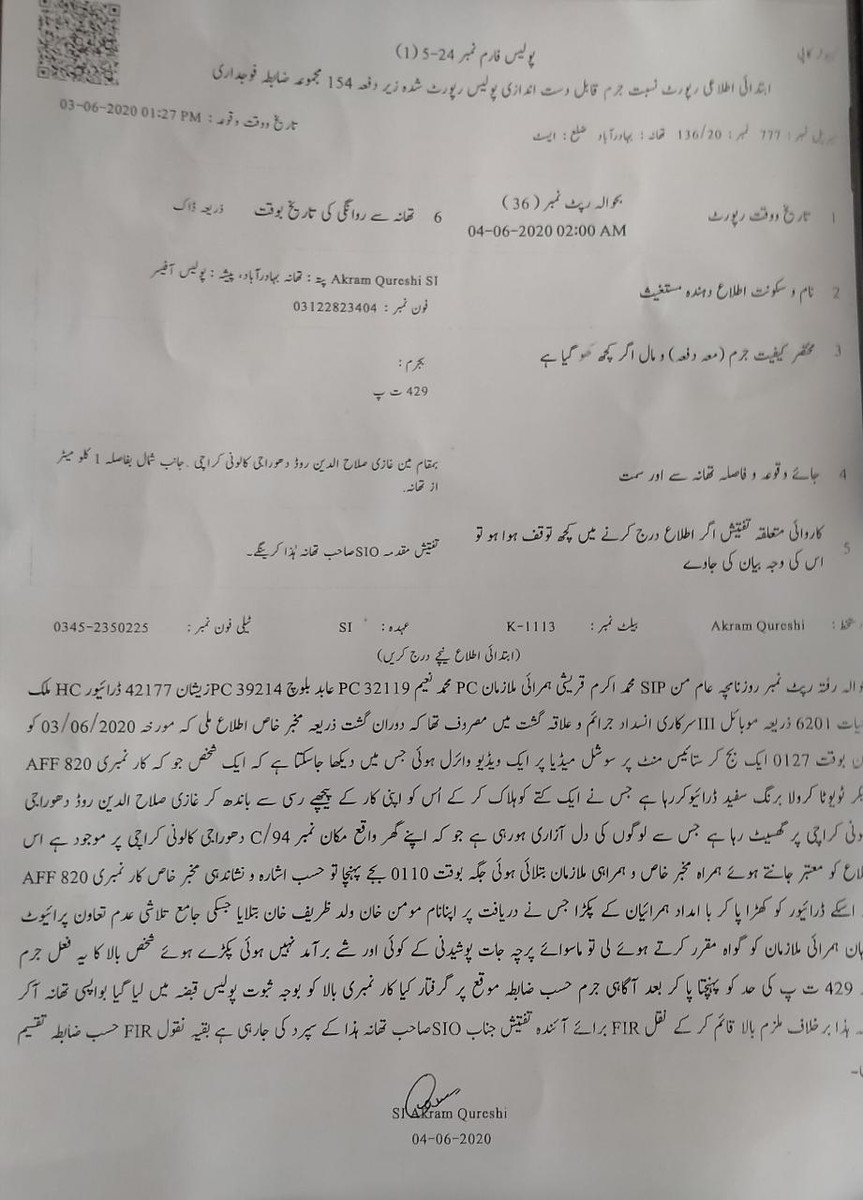 پولیس فارم نمبر 24-5 (1)
ابتدائی اطلاعی رپورٹ نسبت جرم قابل دست اندازی پولیس رپورٹ شدہ زیر دفعہ 154 مجموعہ ضابطہ فوجداری
نمبر : 777 نمبر : 136/20 تھانہ : بہادرآباد ضلع : ایسٹ
تاریخ ووقت وقوعہ : 03-06-2020 01:27 PM
1 تاریخ ووقت رپورٹ
بحوالہ رپٹ نمبر ( 36 )
04-06-2020 02:00 AM
6 تھانہ سے روانگی کی تاریخ بوقت ذریعہ ڈاک
2 نام و سکونت اطلاع دہندہ مستغیث
Akram Qureshi SI پتہ : تھانہ بہادرآباد، پیشہ : پولیس آفیسر
فون نمبر : 03122823404
3 مختصر کیفیت جرم (معہ دفعہ) و مال اگر کچھ کھو گیا ہے
بجرم :
429 ت پ
4 جائے وقوعہ و فاصلہ تھانہ سے اور سمت
بمقام مین غازی صلاح الدین روڈ دھوراجی کالونی کراچی ۔جانب شمال بفاصلہ 1 کلو میٹر
از تھانہ.
5 کاروائی متعلقہ تفتیش اگر اطلاع درج کرنے میں کچھ توقف ہوا ہو تو
اس کی وجہ بیان کی جاوے
تفتیش مقدمہ SIO صاحب تھانہ ہٰذا کرینگے۔
Akram Qureshi بیلٹ نمبر : K-1113 عہدہ : SI ٹیلی فون نمبر : 0345-2350225
(ابتدائی اطلاع نیچے درج کریں)
رفتہ رپٹ نمبر روزنامچہ عام من SIP محمد اکرم قریشی ہمرائی ملازمان PC محمد نعیم PC 32119 عابد بلوچ PC 39214 زیشان 42177 ڈرائیور HC ملک
6201 ذریعہ موبائل III سرکاری انسداد جرائم و علاقہ گشت میں مصروف تھا کہ دوران گشت ذریعہ مخبر خاص اطلاع ملی کہ مورخہ 03/06/2020 کو
بوقت 0127 ایک بج کر ستائیس منٹ پر سوشل میڈیا پر ایک ویڈیو وائرل ہوئی جس میں دیکھا جاسکتا ہے کہ ایک شخص جو کہ کار نمبری AFF 820
ٹویوٹا کرولا برنگ سفید ڈرائیو کررہا ہے جس نے ایک کتے کو ہلاک کر کے اُس کو اپنی کار کے پیچھے رسی سے باندھ کر غازی صلاح الدین روڈ دھوراجی
کراچی پر گھسیٹ رہا ہے جس سے لوگوں کی دل آزاری ہورہی ہے جو کہ اپنے گھر واقع مکان نمبر C/94 دھوراجی کالونی کراچی پر موجود ہے اس
کو معتبر جانتے ہوئے ہمراہ مخبر خاص و ہمراہی ملازمان بتلائی ہوئی جگہ بوقت 0110 بجے پہنچا تو حسب اشارہ و نشاندہی مخبر خاص کار نمبری AFF 820
اسکے ڈرائیور کو کھڑا پا کر با امداد ہمرائیان کے پکڑا جس نے دریافت پر اپنانام مومن خان ولد ظریف خان بتلایا جسکی جامع تلاشی عدم تعاون پرائیوٹ
ہمرائی ملازمان کو گواہ مقرر کرتے ہوئے لی تو ماسوائے پرچہ جات پوشیدنی کے کوئی اور شے برآمد نہیں ہوئی پکڑے ہوئے شخص بالا کا یہ فعل جرم
429 ت پ کی حد کو پہنچتا پا کر بعد آگاہی جرم حسب ضابطہ موقع پر گرفتار کیا کار نمبری بالا کو بوجہ ثبوت پولیس قبضہ میں لیا گیا بواپسی تھانہ آکر
ہذا برخلاف ملزم بالا قائم کر کے نقل FIR برائے آئندہ تفتیش جناب SIO صاحب تھانہ ہذا کے سپرد کی جارہی ہے بقیہ نقول FIR حسب ضابطہ تقسیم
SI Akram Qureshi
04-06-2020